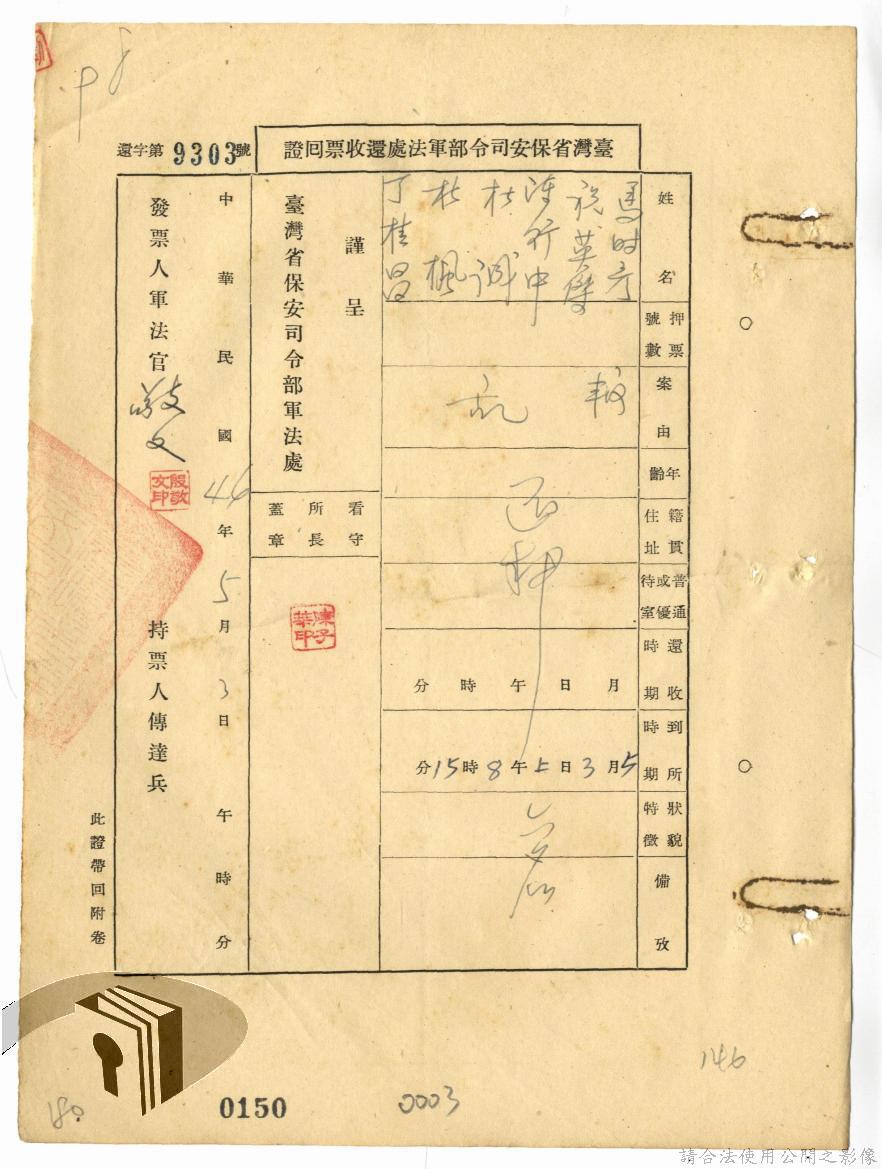 還字第9303號
臺灣省保安司令部軍法處還收票回證
姓名
馬时彥
祝英傑
陳行中
杜誠
杜楓
丁桂昌
押票號數
案由
叛乱
年齡
籍貫住址
普通或優待室
還收時期
月 日 午 時 分
到所時期
5月3日上午8時15分
狀貌特徵
備攷
還押
謹呈
臺灣省保安司令部軍法處
看守所長蓋章
陳子華印
中華民國46年5月3日 午 時 分
發票人軍法官
敬文
殷敬文印
持票人傳達兵
此證帶回附卷
146
180
0150
0003
請合法使用公開之影像